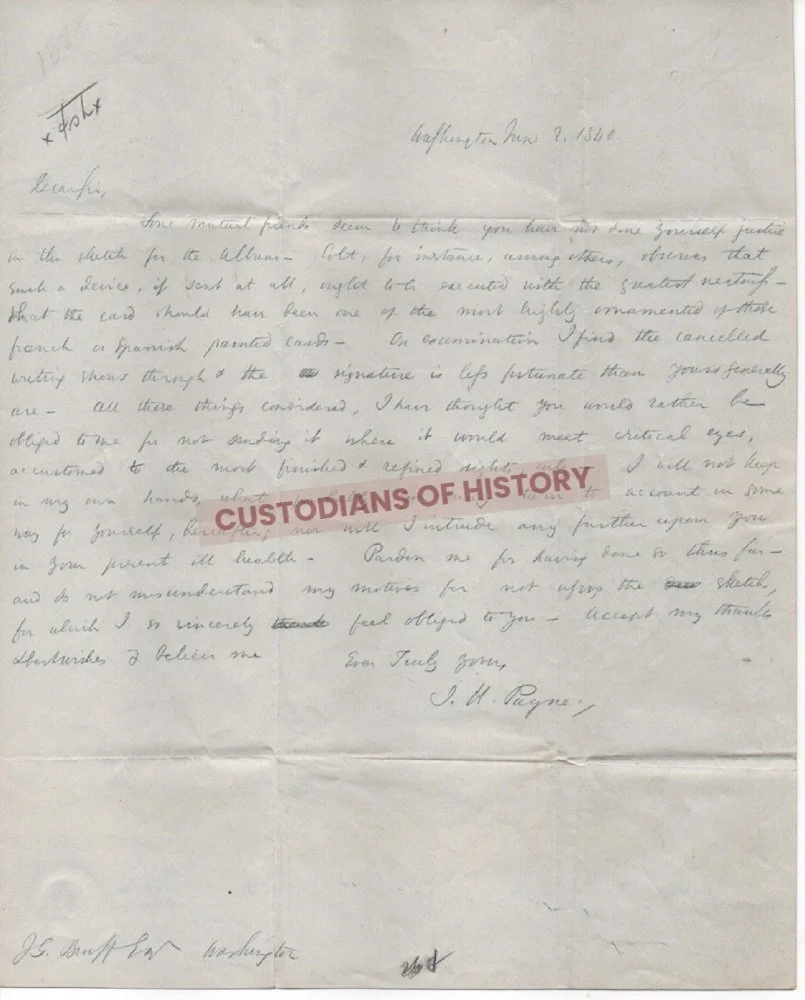 Washington June 2. 1840.
Dear Sir,
Some mutual friends seem to think you have not done yourself justice
in the sketch for the Album – Colt, for instance, among others, observes that
such a device, if sent at all, ought to be executed with the greatest neatness –
that the card should have been one of the most highly ornamented of those
french or Spanish painted cards – On examination I find the cancelled
writing shows through & the signature is less fortunate than yours generally
are – All these things considered, I have thought you would rather be
obliged to me for not sending it where it would meet critical eyes,
accustomed to the most finished & refined sights only – I will not keep
in my own hands, what to account in some
way for yourself, hereafter; nor will I intrude any further upon you
in your present ill health – Pardon me for having done so thus far –
and do not misunderstand my motives for not using the sketch,
for which I so sincerely thank feel obliged to you – Accept my thanks
& best wishes & believe me Ever Truly yours,
J. H. Payne.
CUSTODIANS OF HISTORY
J G. Bruff Esqr Washington